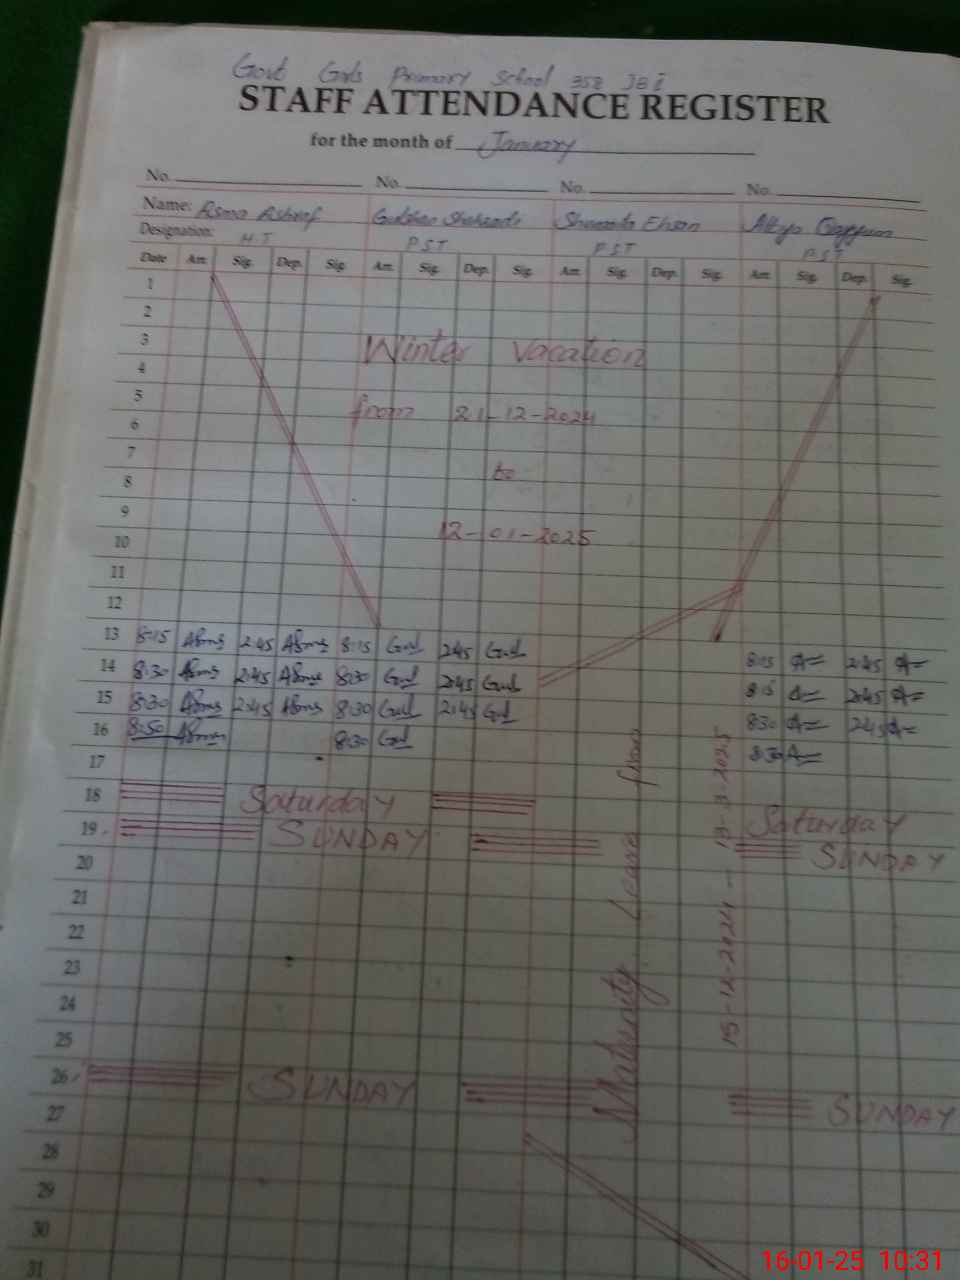 Govt Girls Primary School 358 JB i
STAFF ATTENDANCE REGISTER
for the month of January
No. No. No. No.
Name: Asma Ashraf Gulshan Shahzadi Shumaila Ehsan Atiya Qayyum
Designation: H.T P.S.T P.S.T P.S.T
Date Arr. Sig. Dep. Sig. Arr. Sig. Dep. Sig. Arr. Sig. Dep. Sig. Arr. Sig. Dep. Sig.
1
2
3 Winter vacation
4
5 from 21-12-2024
6
7 to
8
9
10 12-01-2025
11
12
13 8:15 Asma 2:45 Asma 8:15 Gul 2:45 Gul 8:15 A 2:45 A
14 8:30 Asma 2:45 Asma 8:30 Gul 2:45 Gul 8:15 A 2:45 A
15 8:30 Asma 2:45 Asma 8:30 Gul 2:45 Gul 8:30 A 2:45 A
16 8:50 Asma 8:30 Gul 8:30 A
17
18 Saturday Saturday
19 SUNDAY SUNDAY
20
21
22
23
24
25
26 SUNDAY SUNDAY
27
28
29
30
31
Maternity Leave from
15-12-2024 — 13-3-2025
16-01-25 10:31